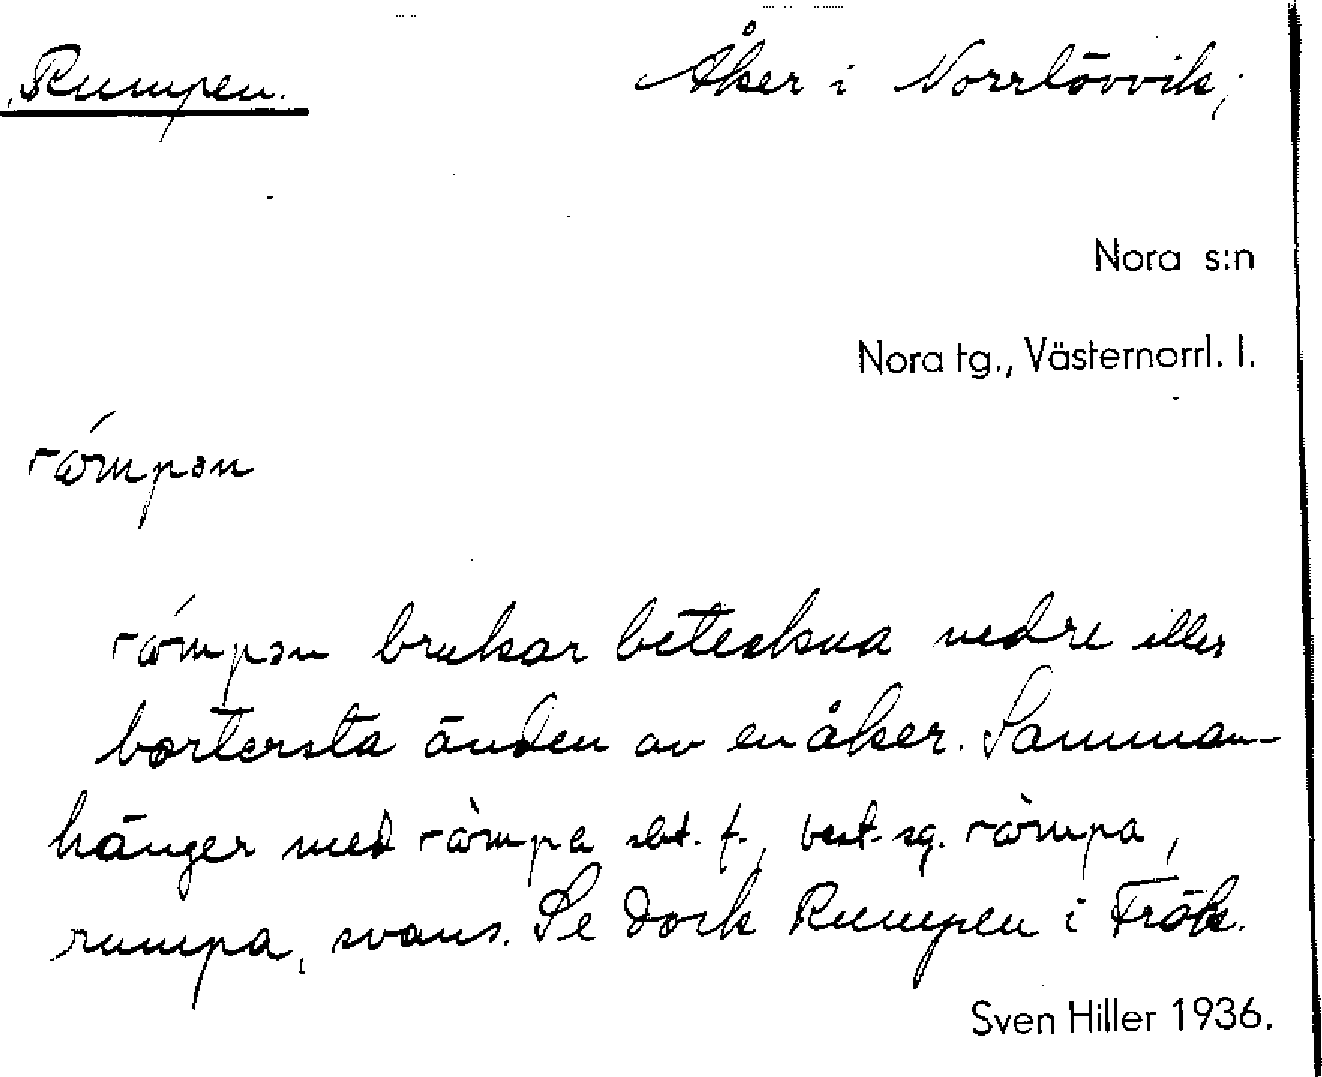 Rumpen.
Åker i Norrlövvik;
Nora s:n
Nora tg., Västernorrl. l.
rœ́mpən
rœ́mpən brukar beteckna nedre eller
bortersta änden av en åker. Samman-
hänger med rœ̀mpa sbst. f., best. sg. rœ̀mpa,
rumpa, svans. Se dock Rumpen i Fröks.
Sven Hiller 1936.